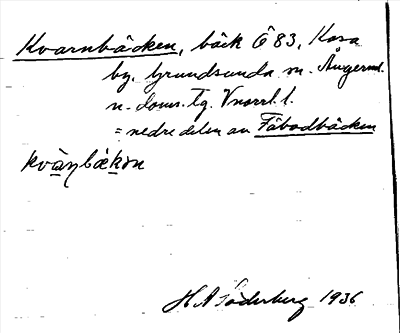 Kvarnbäcken, bäck Ö 83, Kasa
by. Grundsunda sn. Ångerml.
n. doms. Tg. Vnorrl. l.
= nedre delen av Fäbodbäcken
H A Söderberg 1936